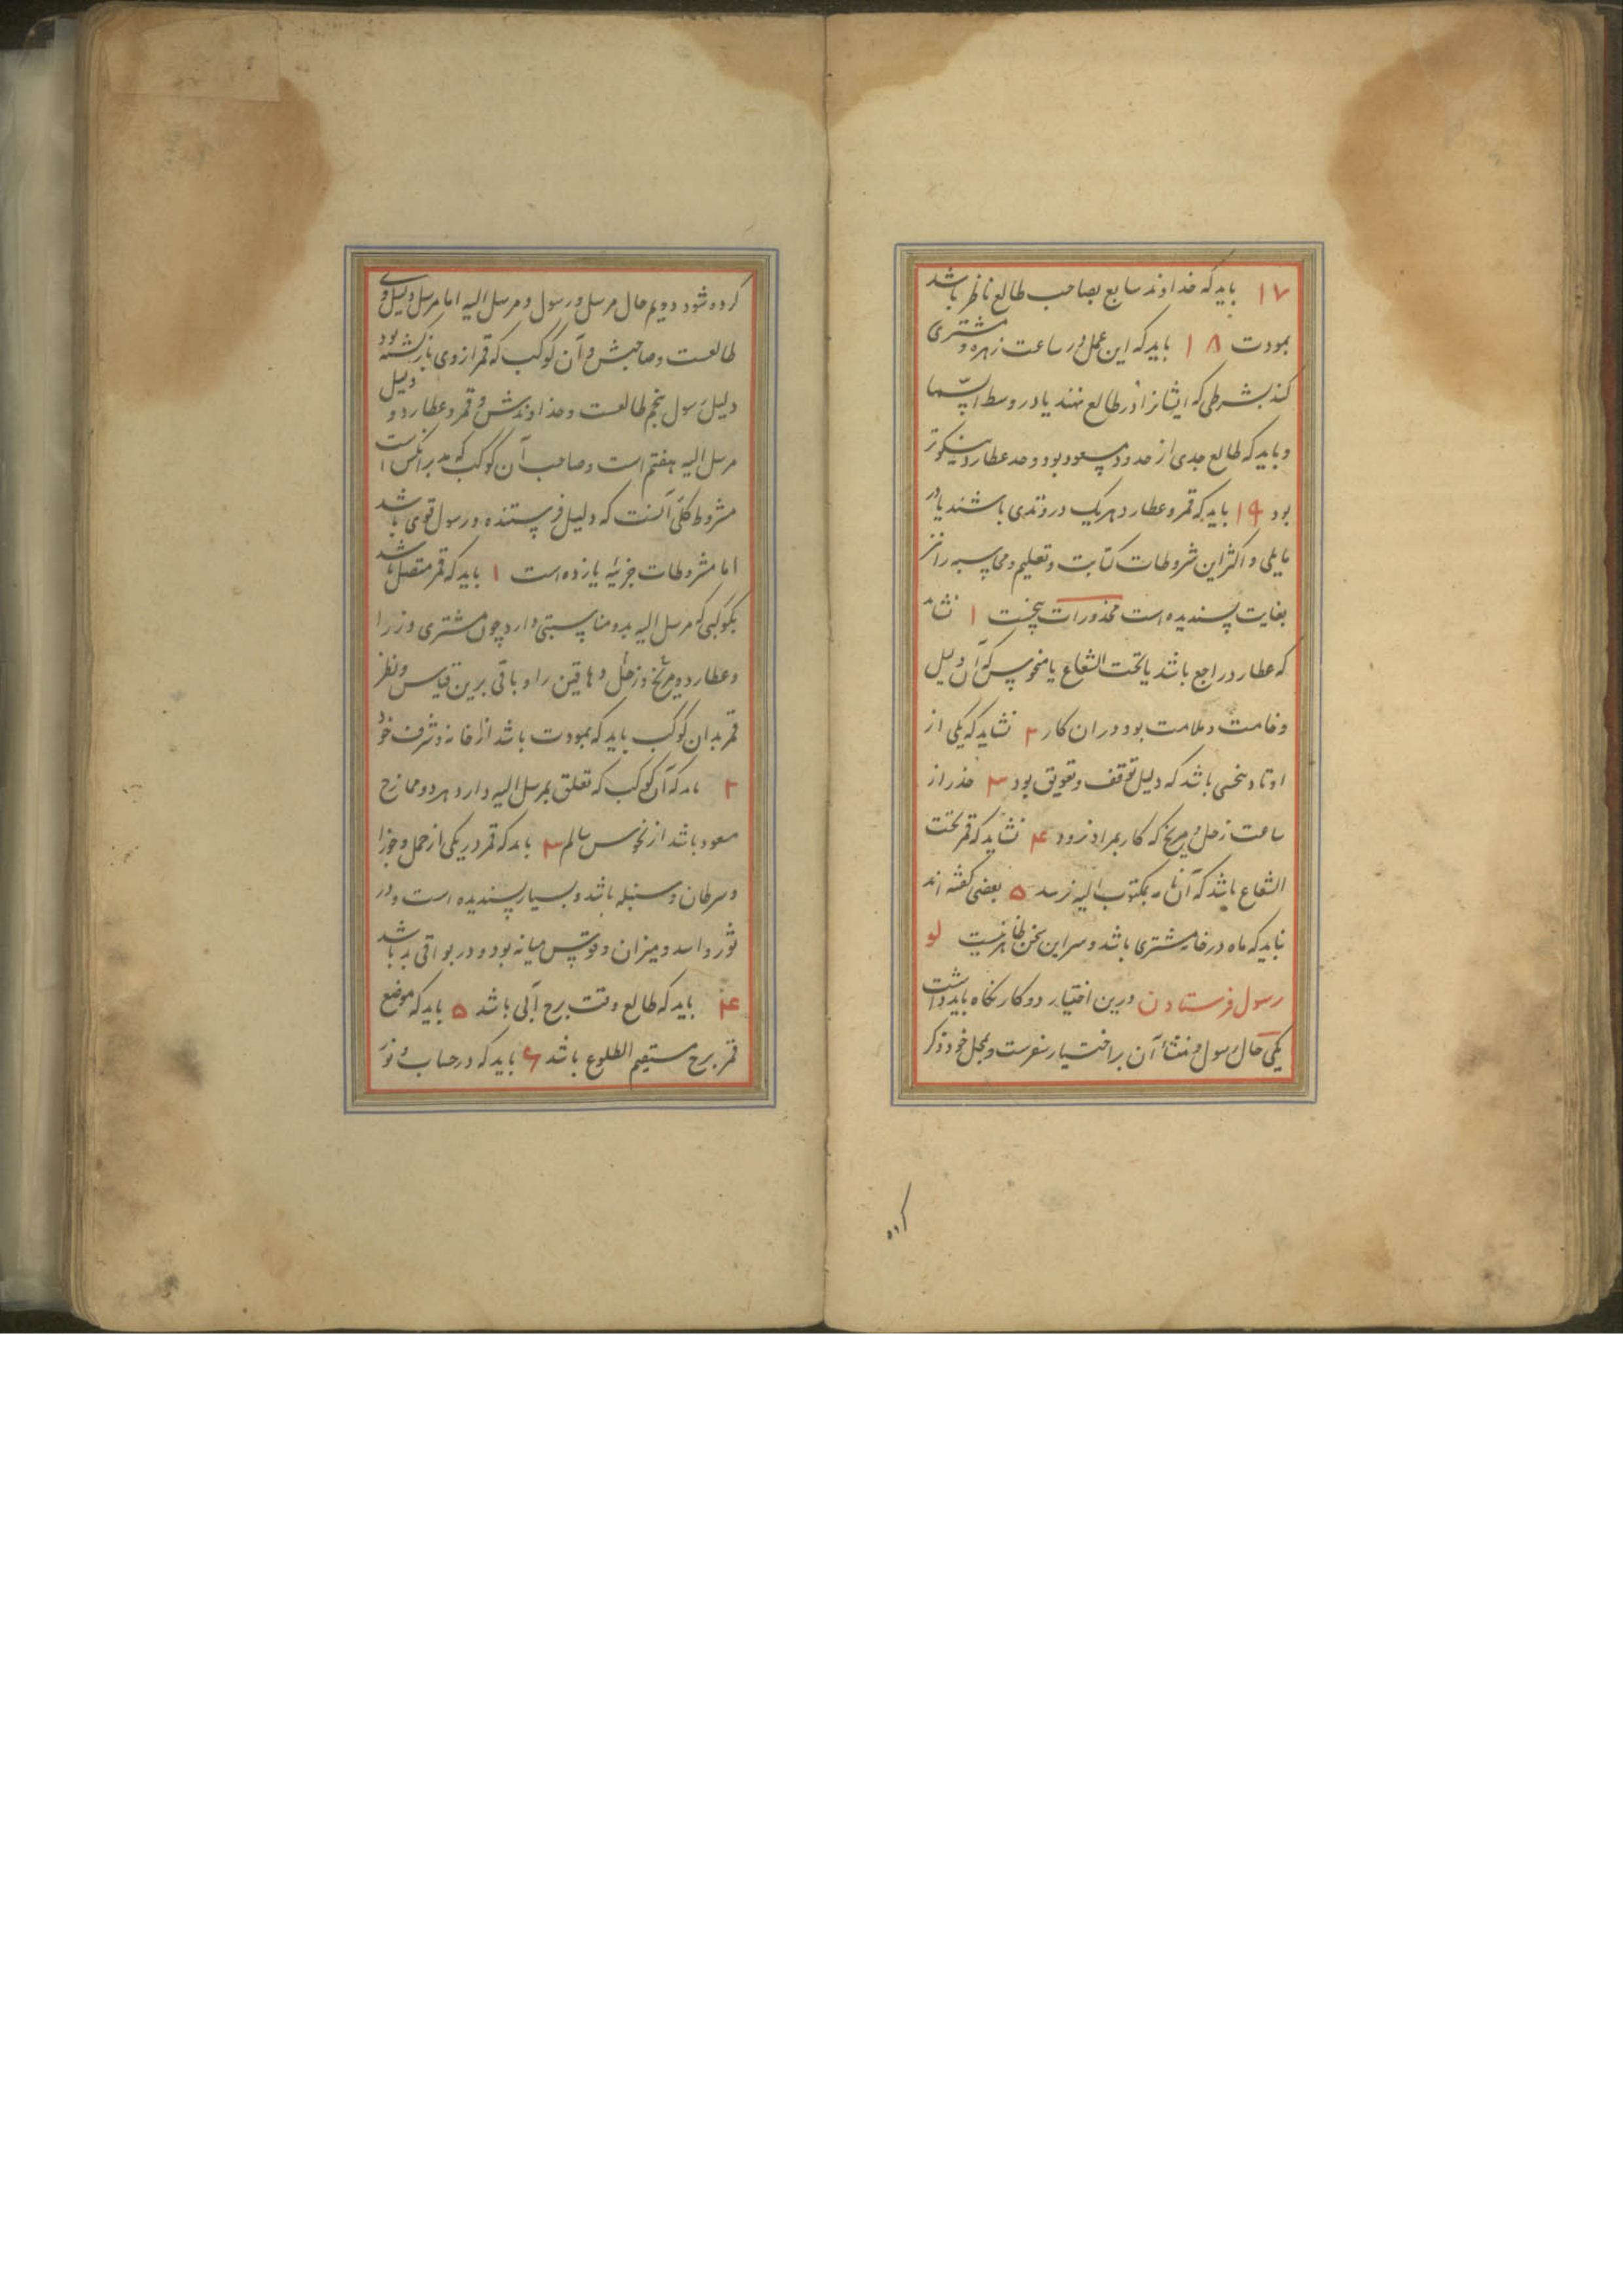 ۱۷ باید که خداوند سابع بصاحب طالع ناظر باشد
بمودت ۱۸ باید که این عمل در ساعت زهره و مشتری
کند بشرطی که ایشانرا در طالع نهند یا در وسط السّما
و باید که طالع جدی از حدود مسعود بود و حد عطارد نیکوتر
بود ۱۹ باید که قمر و عطارد هریک در وتدی باشند یا در
مایلی و اکثر این شروطات کتابت و تعلیم و محاسبه را نیز
بغایت پسندیده است محذورات پنجست ۱ نشاید
که عطارد راجع باشد یا تحت الشعاع یا منحوس که آن دلیل
وخامت و ملامت بود در ان کار ۲ نشاید که یکی از
اوتاد نحسی باشد که دلیل توقف و تعویق بود ۳ حذر از
ساعت زحل و مریخ که کار بمراد نرود ۴ نشاید که قمر تحت
الشعاع باشد که آن نامه بمکتوب الیه نرسد ۵ بعضی گفته اند
نباید که ماه در خانه مشتری باشد و سر این سخن ظاهر نیست لو
رسول فرستادن درین اختیار دو کار نگاه باید داشت
یکی حال رسول و منشاء آن بر اختیار سفرست و بمحل خود ذکر
کرده
کرده شود دویم حال مرسل و رسول و مرسل الیه اما مرسل دلیل وی
طالعست و صاحبش و آن کوکب که قمر از وی بازگشته بود
دلیل رسول پنجم طالعست و خداوندش و قمر و عطارد و دلیل
مرسل الیه هفتم است و صاحب آن کوکب که مدبر انکس است
شروط کلّی آنست که دلیل فرستنده و رسول قوی باشد
اما شروطات جزئیه یازده است ۱ باید که قمر متصل باشد
بکوکبی که مرسل الیه بدو مناسبتی دارد چون مشتری وزرا
و عطارد و مریخ و زحل دهاقین را و باقی برین قیاس و نظر
قمر بدان کوکب باید که بمودت باشد از خانه و شرف خود
۲ باید که آن کوکب که تعلق بمرسل الیه دارد هر دو ممازج
سعود باشد از نحوس سالم ۳ باید که قمر در یکی از حمل و جوزا
و سرطان و سنبله باشد و بسیار پسندیده است و در
ثور و اسد و میزان و قوس میانه بود و در بواقی بد باشد
۴ باید که طالع وقت برج آبی باشد ۵ باید که موضع
قمر برج مستقیم الطلوع باشد ۶ باید که در حساب و نور